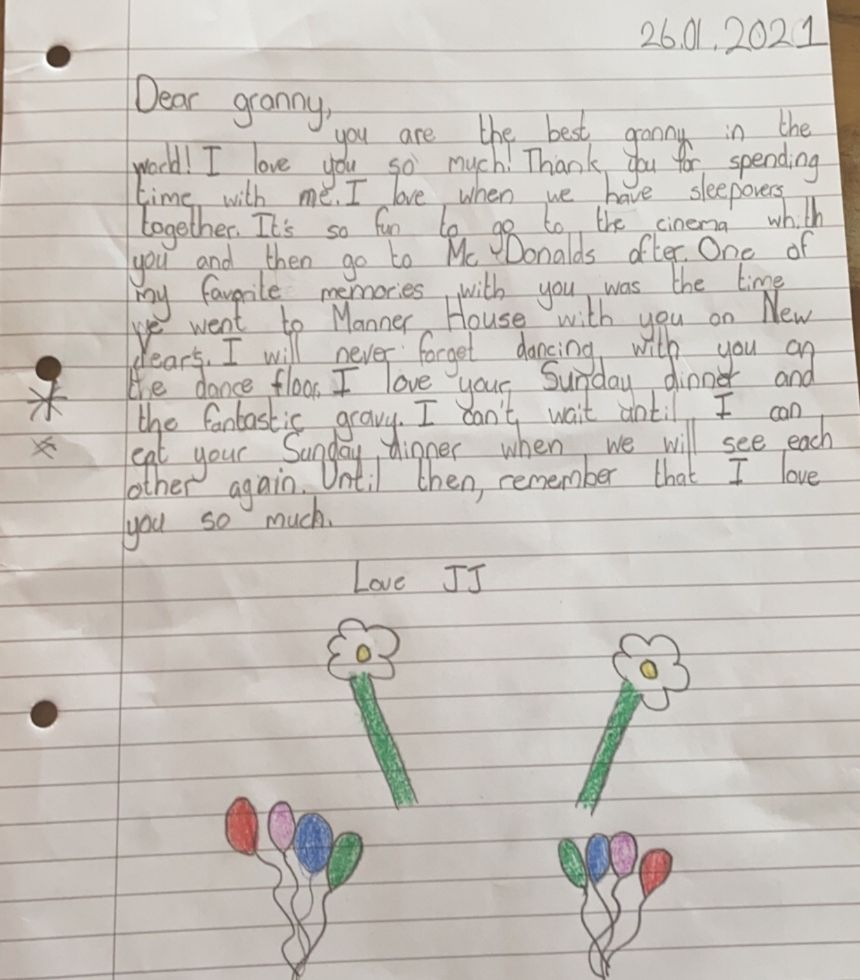 26.01.2021
Dear granny,
you are the best granny in the
world! I love you so much! Thank you for spending
time with me. I love when we have sleepovers
together. It's so fun to go to the cinema whith
you and then go to Mc Donalds after. One of
my favorite memories with you was the time
we went to Manner House with you on New
Years. I will never forget dancing with you on
the dance floor. I love your Sunday dinner and
the fantastic gravy. I can't wait until I can
eat your Sunday dinner when we will see each
other again. Until then, remember that I love
you so much.
Love JJ